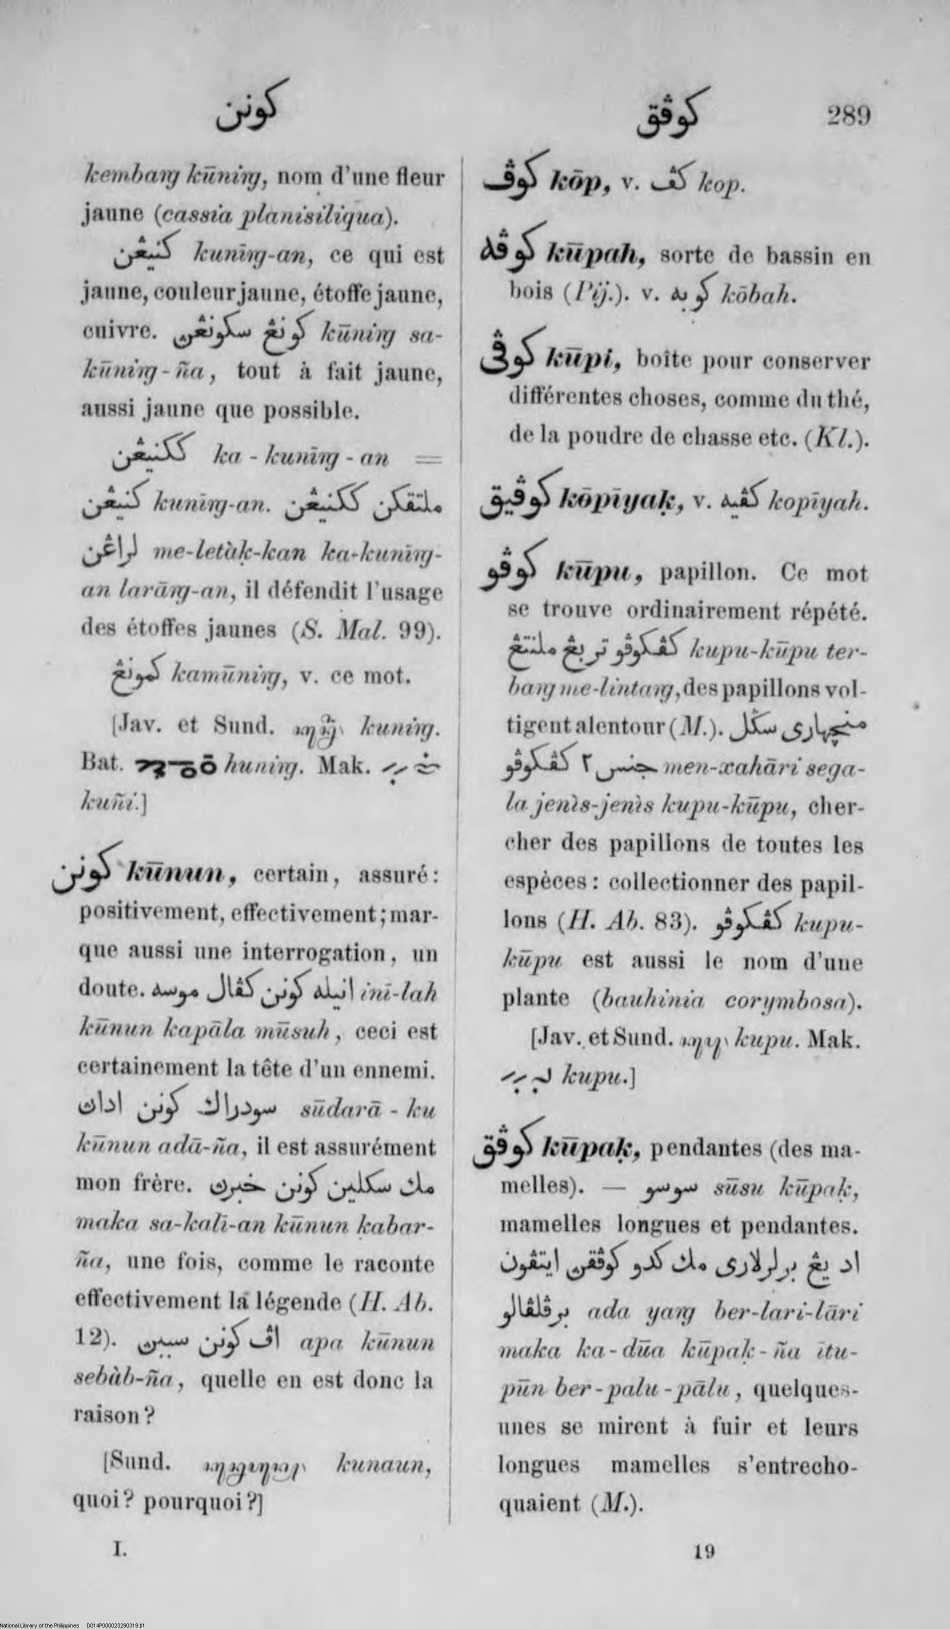 كونن
كوڤق
289
kembaṙg kūniṙg, nom d'une fleur
jaune (cassia planisiliqua).
كنيڠن kunīṙg-an, ce qui est
jaune, couleur jaune, étoffe jaune,
cuivre. كونڠ سكونڠن kūniṙg sa-
kūniṙg-ña, tout à fait jaune,
aussi jaune que possible.
ككنيڠن ka-kunīṙg-an =
كنيڠن kunīṙg-an. ملتقكن ككنيڠن
لراڠن me-letàḳ-kan ka-kunīṙg-
an larāṙg-an, il défendit l'usage
des étoffes jaunes (S. Mal. 99).
كمونڠ kamūniṙg, v. ce mot.
[Jav. et Sund. kuniṙg.
Bat. huniṙg. Mak.
kuñi.]
كونن kūnun, certain, assuré:
positivement, effectivement; mar-
que aussi une interrogation, un
doute. انيله كونن كڤال موسه inī-lah
kūnun kapāla mūsuh, ceci est
certainement la tête d'un ennemi.
سودراك كونن ادان sūdarā-ku
kūnun adā-ña, il est assurément
mon frère. مك سكلين كونن خبرن
maka sa-kalī-an kūnun kabar-
ña, une fois, comme le raconte
effectivement la légende (H. Ab.
12). اڤ كونن سببن apa kūnun
sebàb-ña, quelle en est donc la
raison?
[Sund. kunaun,
quoi? pourquoi?]
I.
كوڤ kōp, v. كڤ kop.
كوڤه kūpah, sorte de bassin en
bois (Pij.). v. كوبه kōbah.
كوڤي kūpi, boîte pour conserver
différentes choses, comme du thé,
de la poudre de chasse etc. (Kl.).
كوڤيق kōpīyaḳ, v. كڤيه kopīyah.
كوڤو kūpu, papillon. Ce mot
se trouve ordinairement répété.
كڤكوڤو تربڠ ملنتڠ kupu-kūpu ter-
baṙg me-lintaṙg, des papillons vol-
tigent alentour (M.). منچهاري سگل
جنس ٢ كڤكوڤو men-xahāri sega-
la jenìs-jenìs kupu-kūpu, cher-
cher des papillons de toutes les
espèces: collectionner des papil-
lons (H. Ab. 83). كڤكوڤو kupu-
kūpu est aussi le nom d'une
plante (bauhinia corymbosa).
[Jav. et Sund. kupu. Mak.
kupu.]
كوڤق kūpaḳ, pendantes (des ma-
melles). — سوسو sūsu kūpaḳ,
mamelles longues et pendantes.
اد يڠ برلرلاري مك كدو كوڤقن ايتڤون
برڤلڤالو ada yaṙg ber-lari-lāri
maka ka-dūa kūpaḳ-ña ītu-
pūn ber-palu-pālu, quelques-
unes se mirent à fuir et leurs
longues mamelles s'entrecho-
quaient (M.).
19
National Library of the Philippines